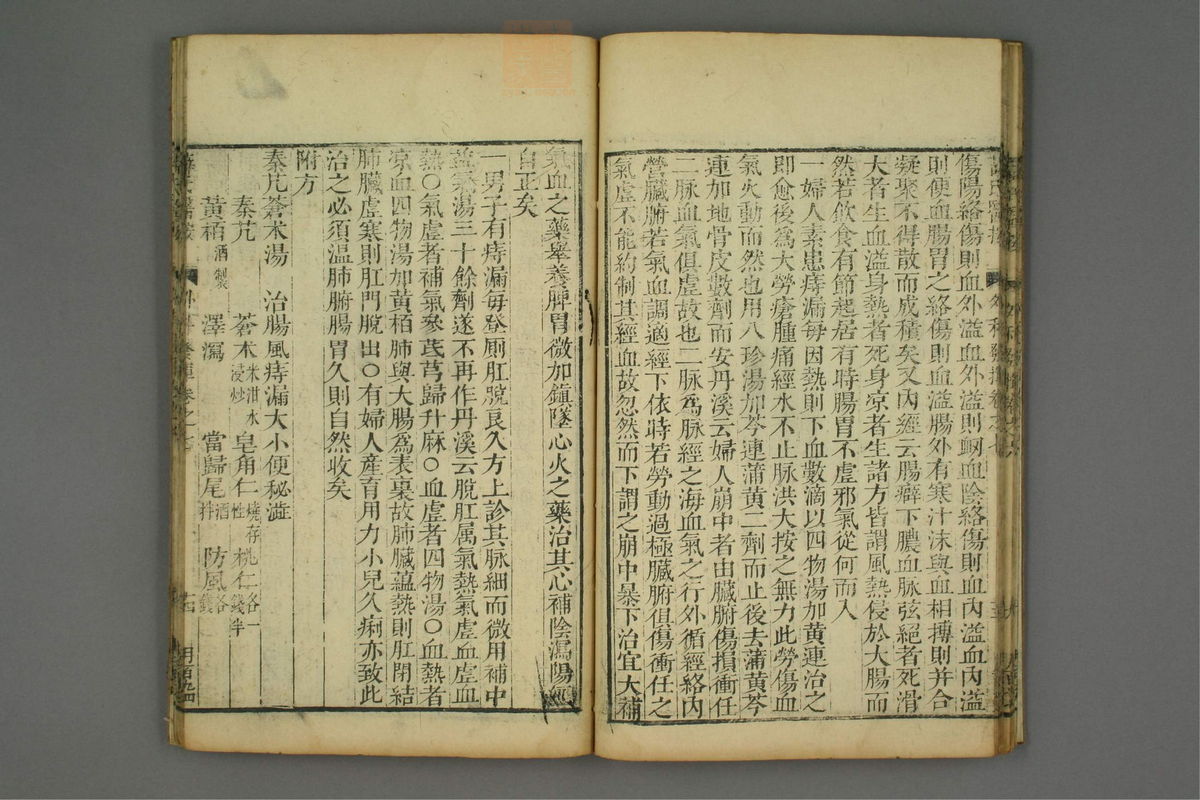 傷陽絡傷則血外溢血外溢則衂血陰絡傷則血內溢血內溢
則便血腸胃之絡傷則血溢腸外有寒汁沫與血相摶則并合
凝聚不得散而成積矣又內經云腸癖下膿血脉弦絕者死滑
大者生血溢身熱者死身凉者生諸方皆謂風熱侵於大腸而
然若飲食有節起居有時腸胃不虛邪氣從何而入
一婦人素患痔漏每因熱則下血數滴以四物湯加黃連治之
即愈後為大勞瘡腫痛經水不止脉洪大按之無力此勞傷血
氣火動而然也用八珍湯加芩連蒲黃二劑而止後去蒲黃芩
連加地骨皮數劑而安丹溪云婦人崩中者由臟腑傷損衝任
二脉血氣俱虛故也二脉為脉經之海血氣之行外循經絡內
營臟腑若氣血調適經下依時若勞動過極臟腑俱傷衝任之
氣虛不能約制其經血故忽然而下謂之崩中暴下治宜大補
氣血之藥舉養脾胃微加鎮墜心火之藥治其心補陰瀉陽經
自正矣
一男子有痔漏每登厠肛脫良久方上診其脉細而微用補中
益氣湯三十餘劑遂不再作丹溪云脫肛属氣熱氣虛血虛血
熱○氣虛者補氣參芪芎歸升麻○血虛者四物湯○血熱者
凉血四物湯加黃栢肺與大腸為表裏故肺臟蘊熱則肛閉結
肺臟虛寒則肛門脫出○有婦人産育用力小兒久痢亦致此
治之必須温肺腑腸胃久則自然收矣
附方
秦芃蒼朮湯 治腸風痔漏大小便秘澁
秦芃 蒼朮米泔水浸炒 皂角仁燒存性 桃仁各一錢半
黃栢酒製 澤瀉 當歸尾酒拌 防風各
薛氏醫按 外科發揮卷之七